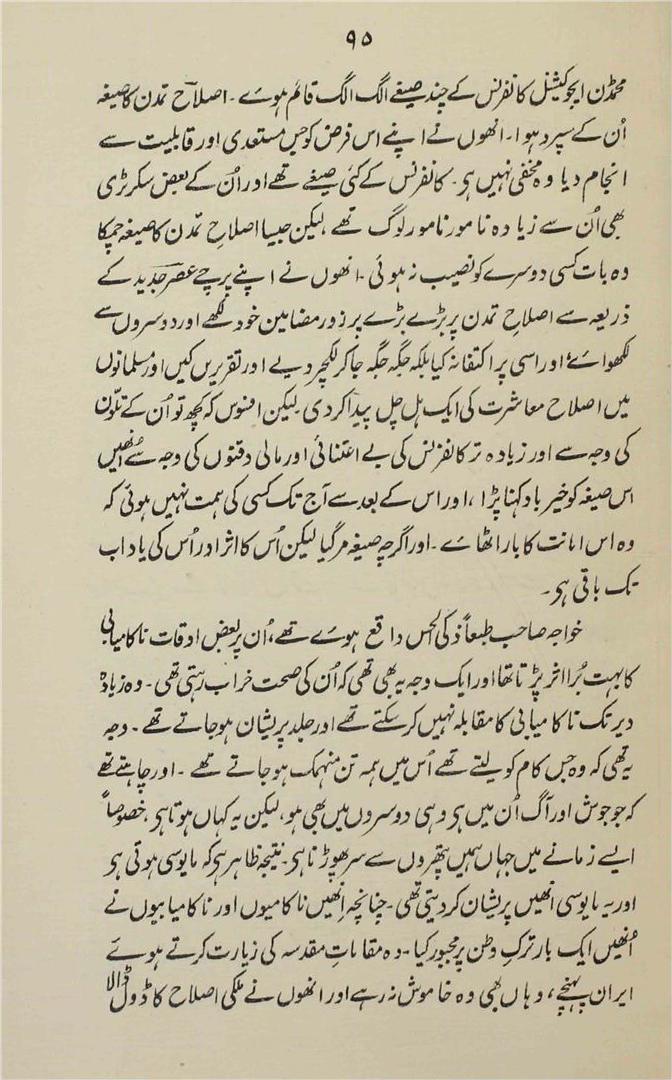 ۹۵
محمڈن ایجوکیشنل کانفرنس کے چند صیغے الگ الگ قائم ہوے ۔ اصلاح تمدن کا صیغہ
اُن کے سپرد ہوا ۔ انھوں نے اپنے اس فرض کو جس مستعدی اور قابلیت سے
انجام دیا وہ مخفی نہیں ہی ۔ کانفرنس کے کئی صیغے تھے اور اُن کے بعض سکرٹری
بھی اُن سے زیادہ نامور نامور لوگ تھے ، لیکن جیسا اصلاحِ تمدن کا صیغہ چمکا
وہ بات کسی دوسرے کو نصیب نہ ہوئی ۔ انھوں نے اپنے پرچے عصر جدید کے
ذریعہ سے اصلاحِ تمدن پر بڑے بڑے پر زور مضامین خود لکھے اور دوسروں سے
لکھوائے اور اسی پر اکتفا نہ کیا بلکہ جگہ جگہ جا کر لکچر دیے اور تقریریں کیں اور مسلمانوں
میں اصلاح معاشرت کی ایک ہل چل پیدا کر دی ۔ لیکن افسوس کہ کچھ تو اُن کے تلّون
کی وجہ سے اور زیادہ تر کانفرنس کی بے اعتنائی اور مالی دقتوں کی وجہ سے اُنھیں
اس صیغہ کو خیر باد کہنا پڑا ، اور اس کے بعد سے آج تک کسی کی ہمت نہیں ہوئی کہ
وہ اس امانت کا بار اٹھاے ۔ اور اگرچہ صیغہ مر گیا لیکن اُس کا اثر اور اُس کی یاد اب
تک باقی ہی ۔
خواجہ صاحب طبعاً ذکی الحس واقع ہوے تھے ، اُن پر بعض اوقات ناکامیابی
کا بہت بُرا اثر پڑتا تھا اور ایک وجہ یہ بھی تھی کہ اُن کی صحت خراب رہتی تھی ۔ وہ زیادہ
دیر تک ناکامیابی کا مقابلہ نہیں کر سکتے تھے اور جلد پریشان ہو جاتے تھے ۔ وجہ
یہ تھی کہ وہ جس کام کو لیتے تھے اُس میں ہمہ تن منہمک ہو جاتے تھے ۔ اور چاہتے تھے
کہ جو جوش اور آگ اُن میں ہی وہی دوسروں میں بھی ہو ، لیکن یہ کہاں ہوتا ہی ، خصوصاً
ایسے زمانے میں جہاں ہمیں پتھروں سے سر پھوڑنا ہی ۔ نتیجہ ظاہر ہی کہ مایوسی ہوتی ہی
اور یہ مایوسی انھیں پریشان کر دیتی تھی ۔ چنانچہ اِنھیں ناکامیوں اور ناکامیابیوں نے
اُنھیں ایک بار ترکِ وطن پر مجبور کیا ۔ وہ مقاماتِ مقدسہ کی زیارت کرتے ہوئے
ایران پہنچے ، وہاں بھی وہ خاموش نہ رہے اور انھوں نے ملکی اصلاح کا ڈول ڈالا